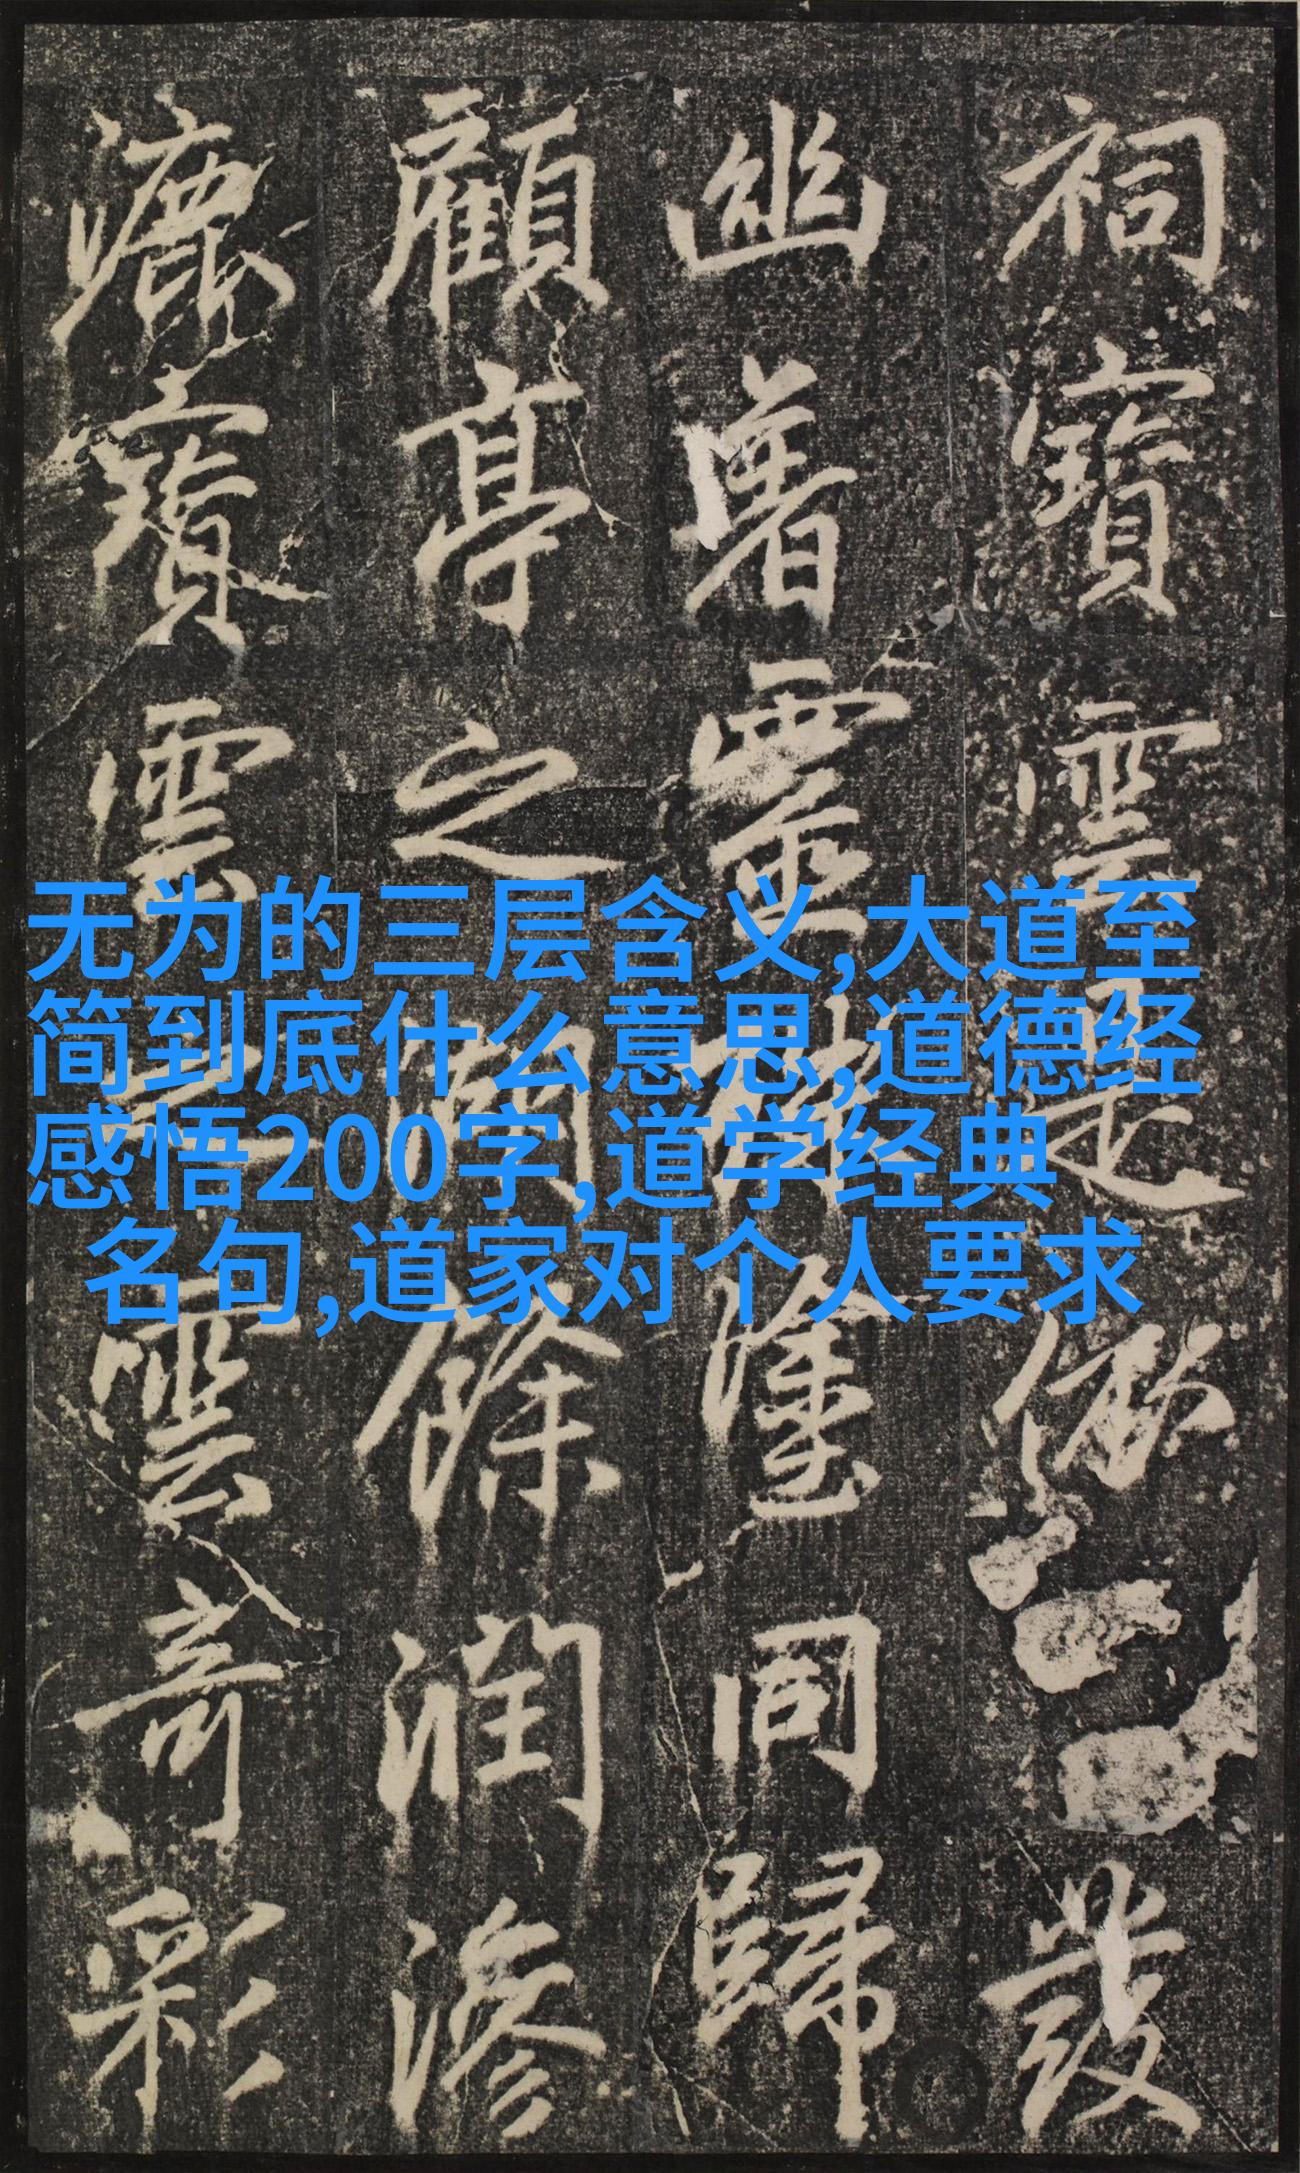 祠寶雲是發
幽暑靈同歸
顧亭之餘潤滲
漉寶雲雲奇彩
无为的三层含义,大道至
简到底什么意思,道德经
感悟200字,道学经典
名句,道家对个人要求